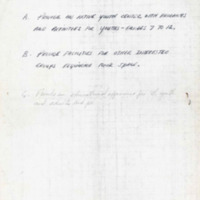 A. PROVIDE AN ACTIVE YOUTH CENTER WITH PROGRAMS
AND ACTIVITIES FOR YOUTHS - GRADES 7 TO 12.
B. PROVIDE FACILITIES FOR OTHER INTERESTED
GROUPS REQUIRING MORE SPACE.
C. Provide an educational experience for all youth
and